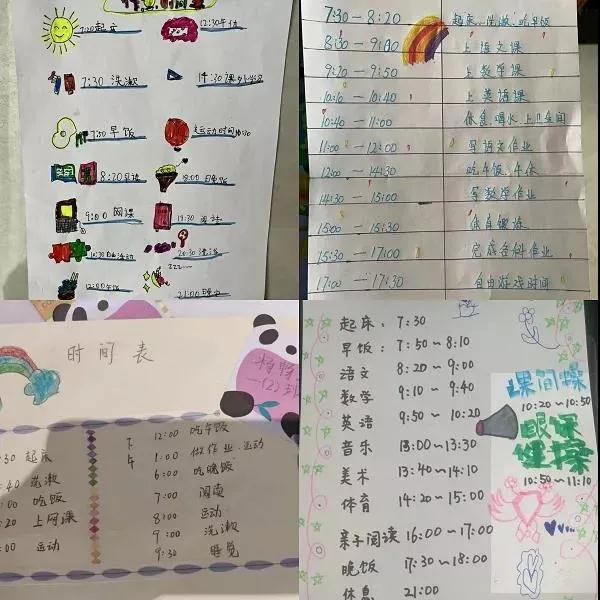 7:00起床
12:30午休
7:30洗漱
14:30课外阅读
7:50早饭
运动时间16:30
8:20早读
18:00
9:00网课
19:30
10:30
20:30洗漱
zzz
12:00午饭
21:00睡觉
7:30—8:20 起床、洗漱、吃早饭
8:30—9:00 上语文课
9:20—9:50 上数学课
10:10—10:40 上英语课
10:40—11:00 休息、喝水、上卫生间
11:00—12:00 写语文作业
12:00—14:30 吃午饭、午休
14:30—15:00 写数学作业
15:00—15:30 体育锻炼
15:30—17:00 完成各科作业
17:00—17:30 自由游戏时间
时间表
一(2)班
30 起床
40 洗漱
00 吃饭
20 上网课
00 运动
下午
12:00 吃午饭
1:00 做作业、运动
6:00 吃晚饭
7:00 阅读
8:00 运动
9:00 洗漱
9:30 睡觉
起床:7:30
早饭:7:50~8:10
语文 8:20~9:00
数学 9:10~9:40
英语 9:50~10:20
音乐 13:00~13:30
美术 13:40~14:10
体育 14:20~15:00
亲子阅读 16:00~17:00
晚饭 17:30~18:00
休息 21:00
课间操
10:20~10:50
眼保
健操
10:50~11:10